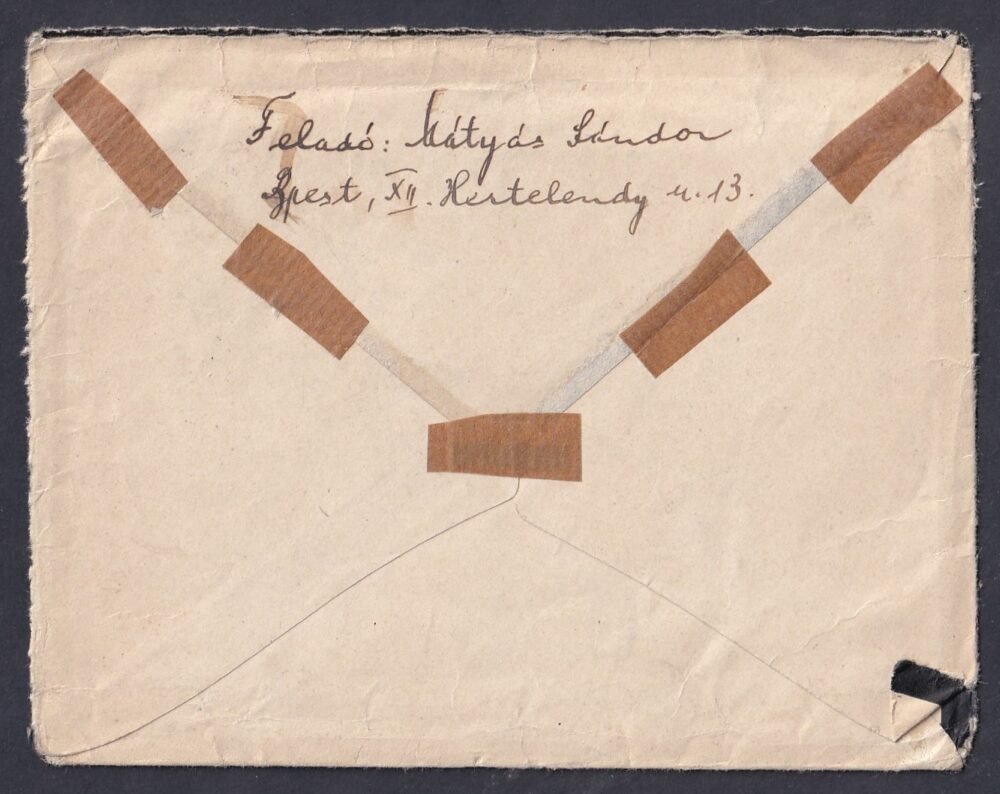 Feladó: Mátyás Sándor
Bpest, XII. Hertelendy u. 13.